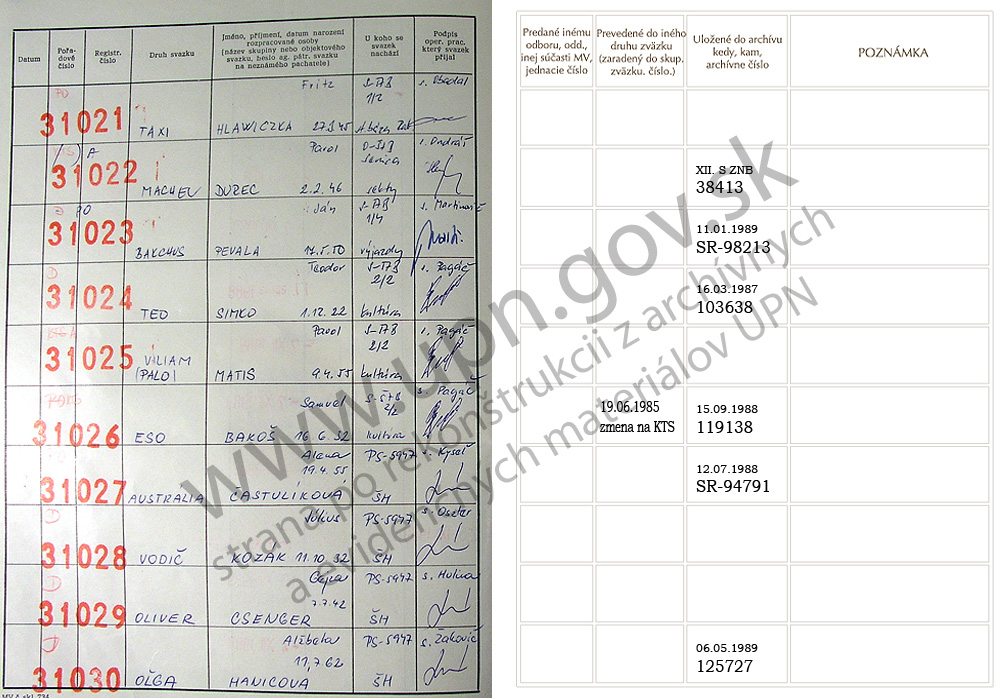 Datum
Pořa-
dové
číslo
Registr.
číslo
Druh svazku
Jméno, příjmení, datum narození
rozpracované osoby
(název skupiny nebo objektového
svazku, heslo ag. pátr. svazku
na neznámého pachatele)
U koho se
svazek
nachází
Podpis
oper. prac.
který svazek
přijal
Fritz
PO
31021
TAXI
HLAWICZKA 27.9.45
1/2
Pavol
s. Ondráš
A
31022
MACHEU
DUZEC 2.2.46
Senica
sekty
Ján
PO
31023
BAKCHUS
PEVALA 17.5.50
výjazdy
Teodor
2/2
s. Pagáč
D
31024
TEO
SIMKO 1.12.22
kultúra
Pavol
2/2
s. Pagáč
31025
VILIAM
(PALO)
MATIS 9.4.55
kultúra
Samuel
2/2
s. Pagáč
31026
ESO
BAKOŠ 16.6.32
kultura
Alena
19.4.55
PS-5947
s. Kyseľ
31027
AUSTRALIA
ČASTULÍKOVÁ
ŠH
Július
PS-5947
D
31028
VODIČ
KOZÁK 11.10.32
ŠH
7.7.42
PS-5947
D
31029
OLIVER
CSENGER
ŠH
Alžbeta
11.7.62
PS-5947
s. Žakovič
D
31030
OĽGA
HANICOVA
ŠH
Predané inému
odboru, odd.,
inej súčasti MV,
jednacie číslo
Prevedené do iného
druhu zväzku
(zaradený do skup.
zväzku. číslo.)
Uložené do archívu
kedy, kam,
archívne číslo
POZNÁMKA
XII. S ZNB
38413
11.01.1989
SR-98213
16.03.1987
103638
19.06.1985
zmena na KTS
15.09.1988
119138
12.07.1988
SR-94791
06.05.1989
125727
www.upn.gov.sk
strana po rekonštrukcii z archívnych
a evidenčných materiálov UPN